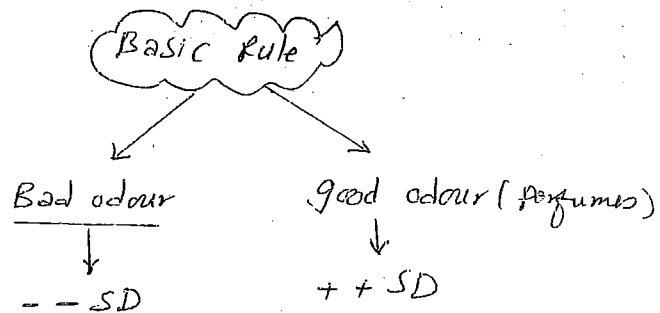 Basic Rule
Bad odour good odour (perfumes)
- - SD + + SD